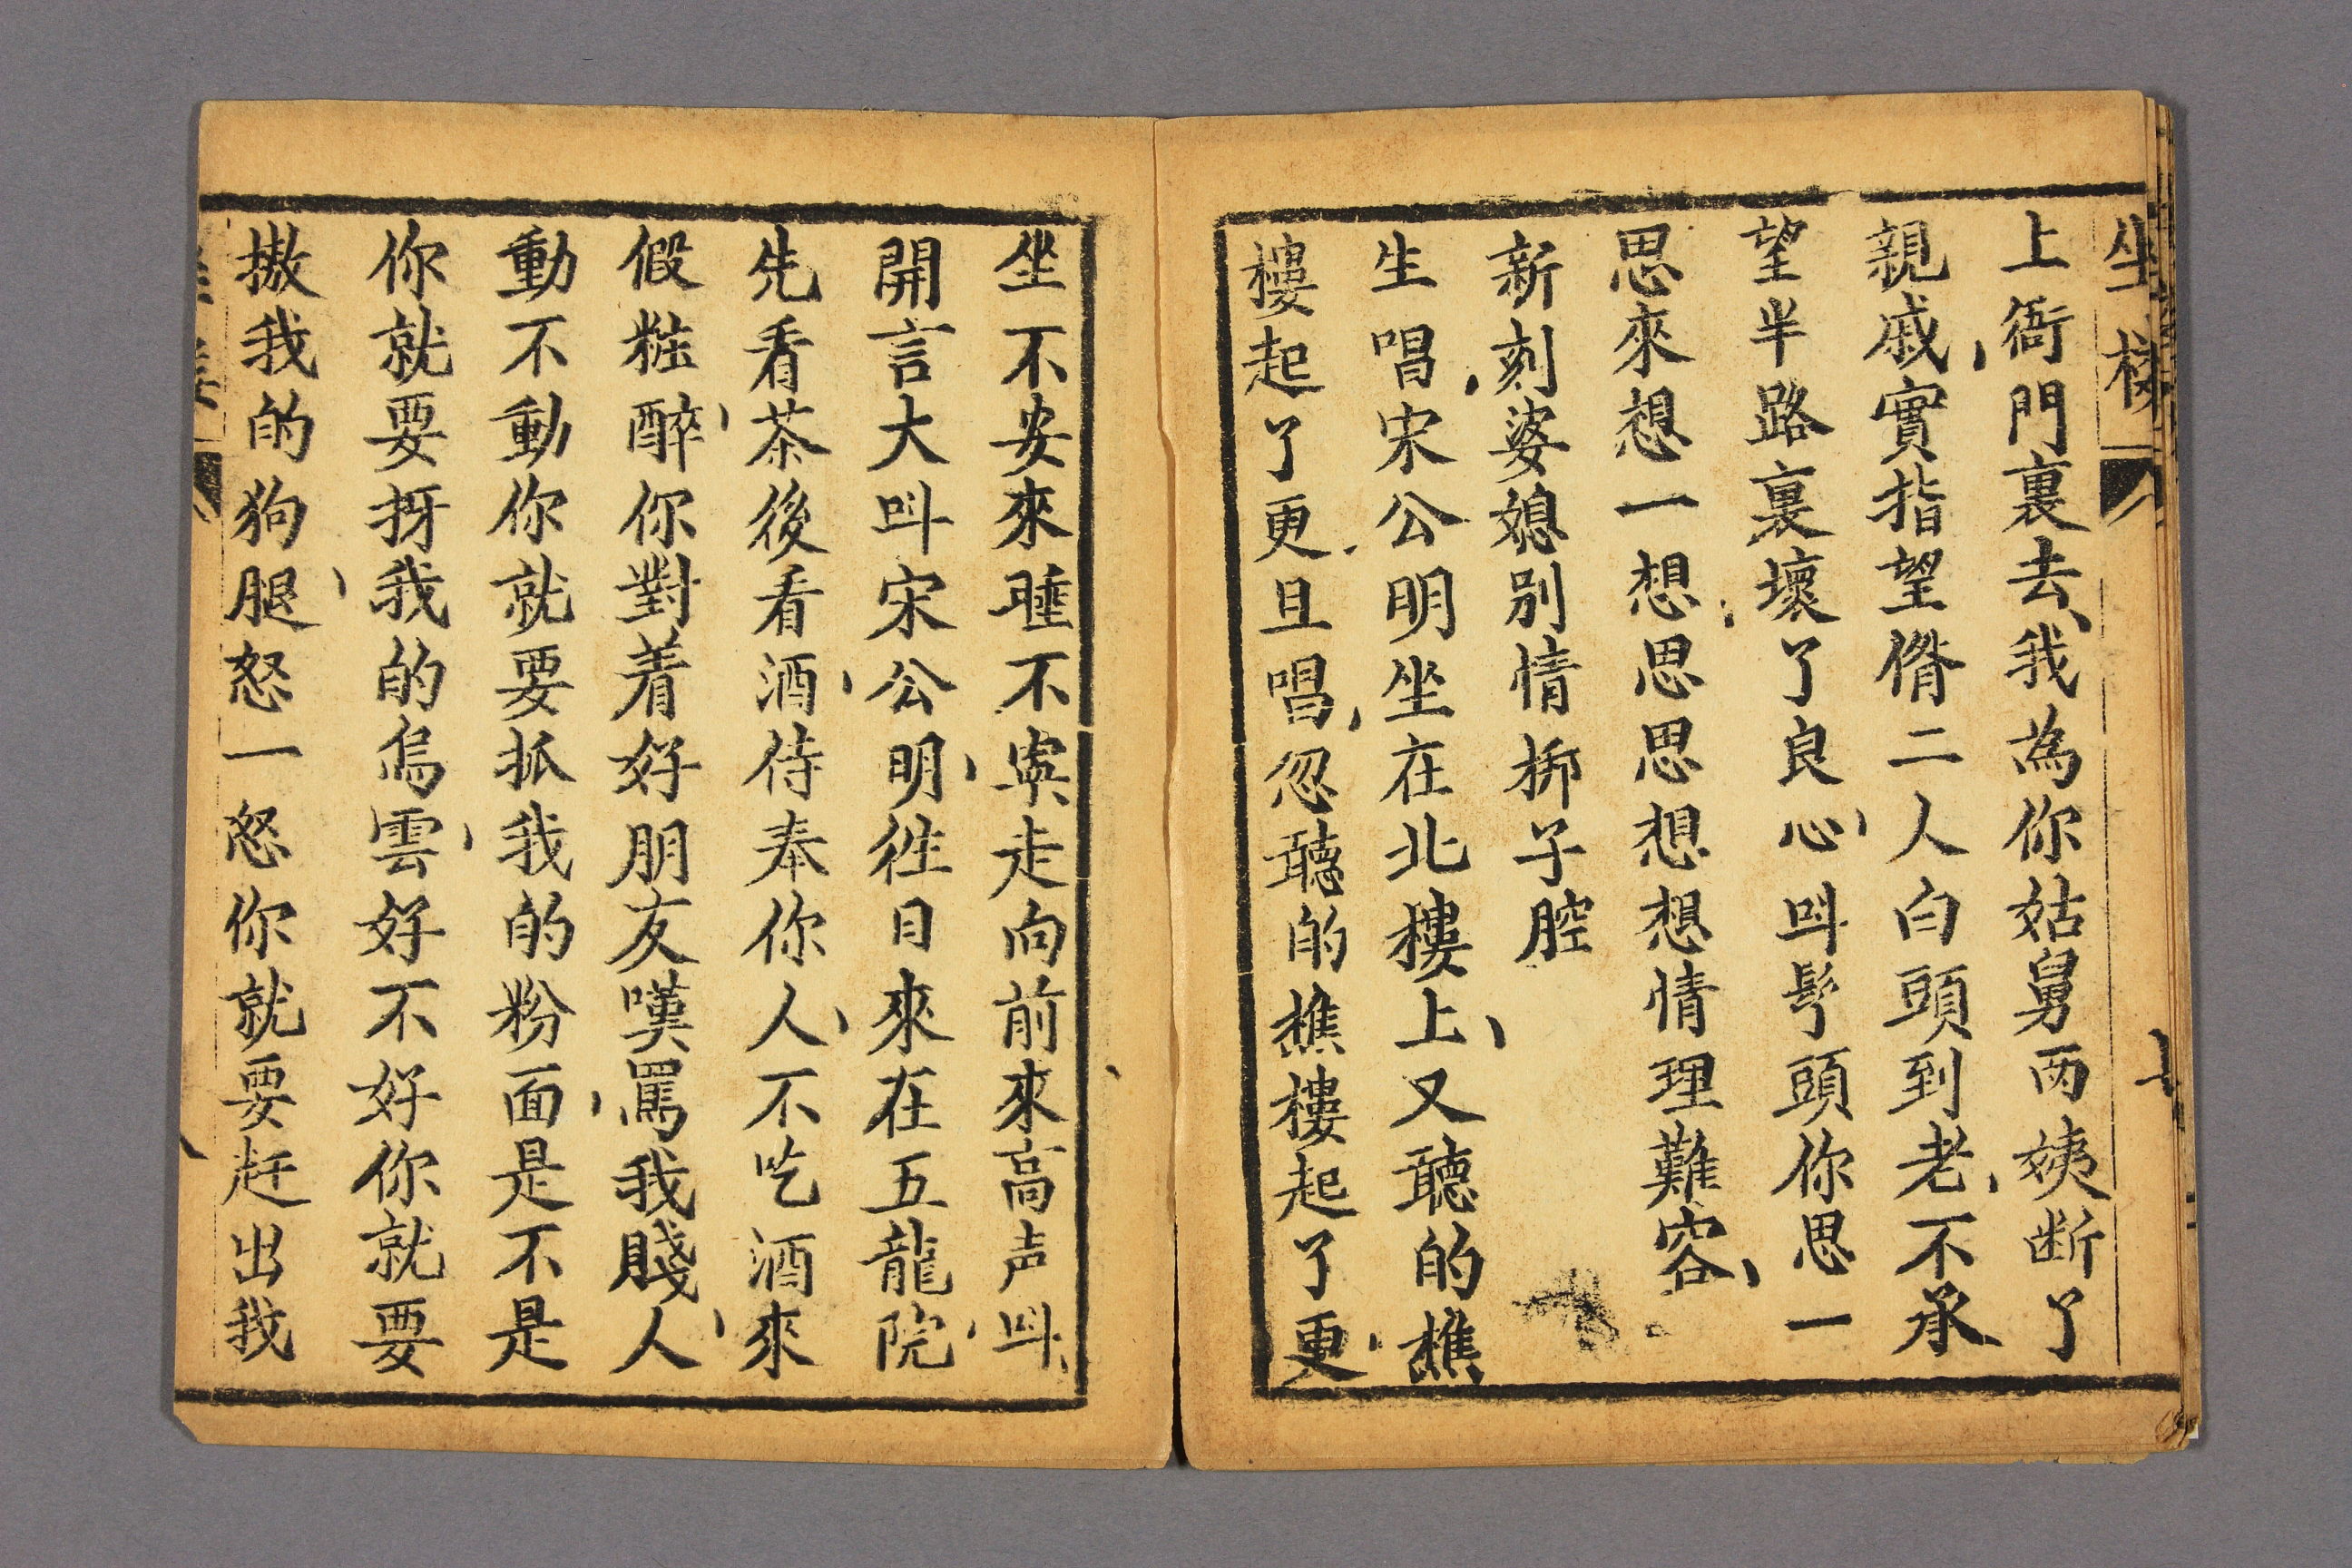 坐楼
上衙門裏去我為你姑舅両姨断了
親戚實指望偺二人白頭到老不承
望半路裏壞了良心呌髩頭你思一
思來想一想思思想想情理難容
新刻婆媳别情梆子腔
生唱宋公明坐在北樓上又聽的樵
樓起了更旦唱忽聽的樵樓起了更
坐不安來睡不寕走向前來高声呌
開言大呌宋公明徃日來在五龍院
先看茶後看酒侍奉你人不吃酒來
假粧醉你對着好朋友嘆罵我賤人
動不動你就要抓我的粉面是不是
你就要抪我的烏雲好不好你就要
撴我的狗腿怒一怒你就要赶出我